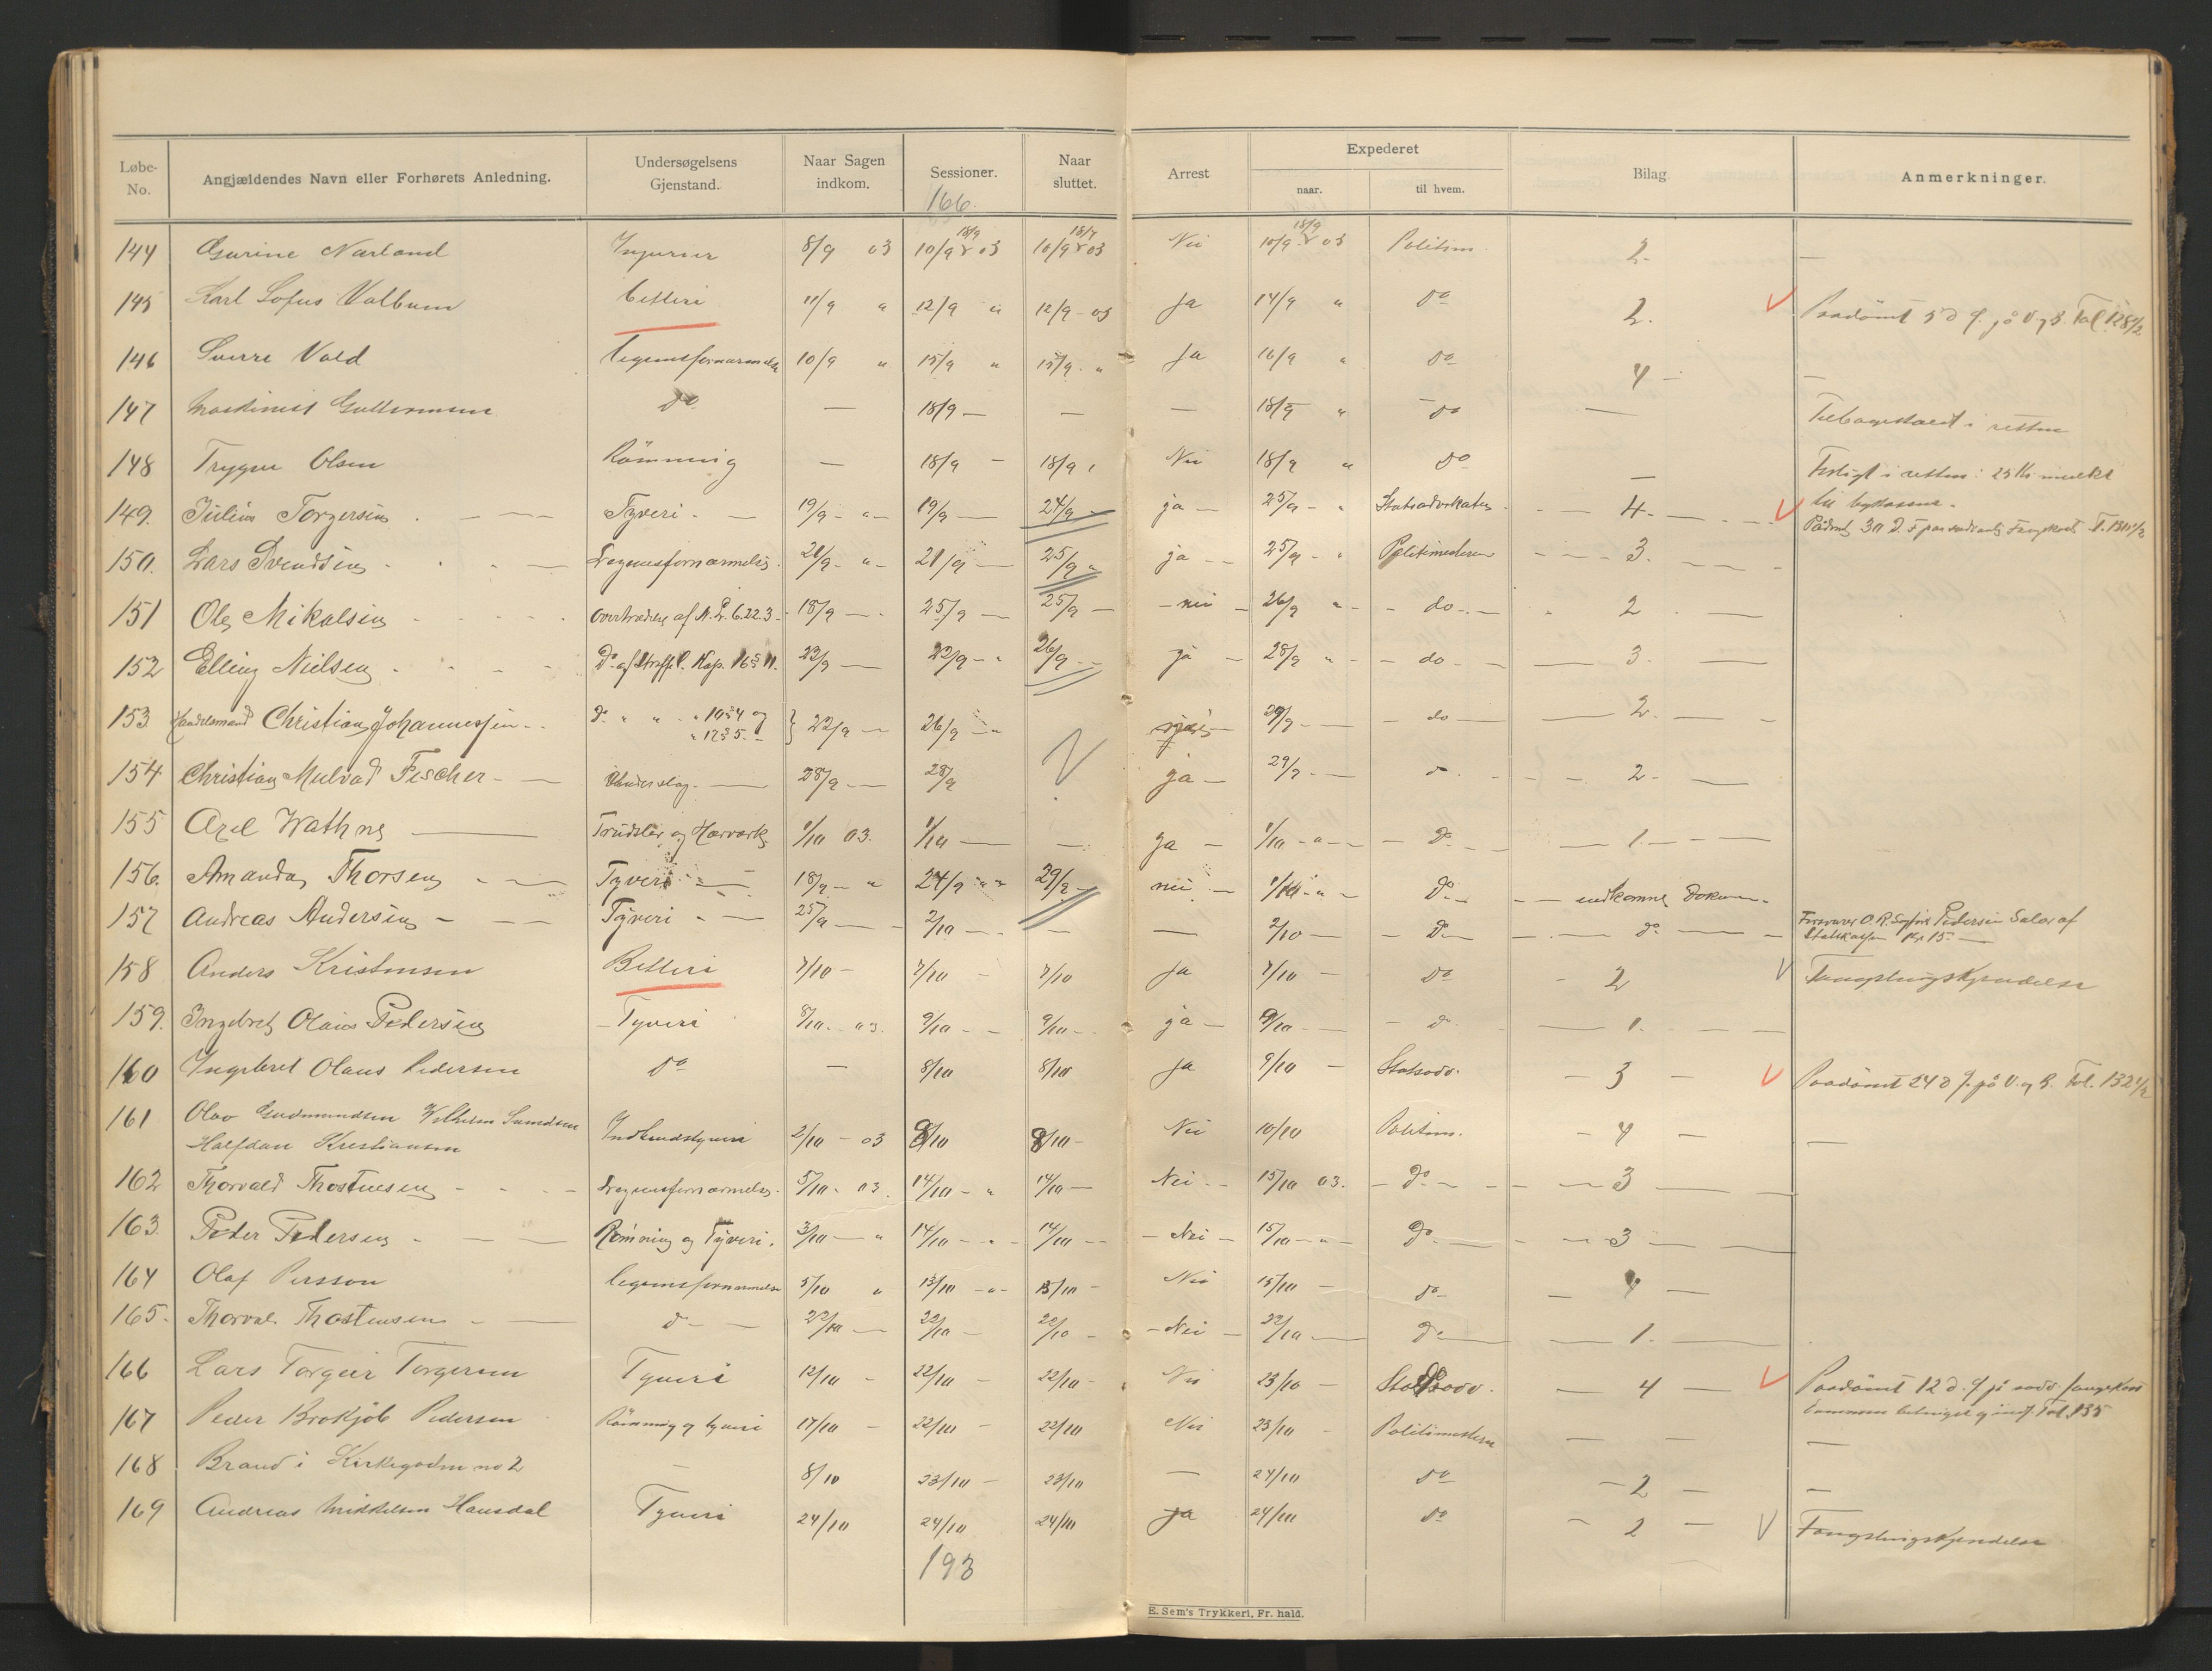 Løbe-No. Angjældendes Navn eller Forhørets Anledning. Undersøgelsens Gjenstand. Naar Sagen indkom. Sessioner. Naar sluttet. Arrest Expederet naar. til hvem. Bilag Anmerkninger.
166.
144 Gurine Narland 8/9 03 10/9 & 18/9 03 10/9 & 18/9 03 Nei 10/9 & 18/9 03 Politim. 2. —
145 Karl Sofus Valbum Betleri 11/9 " 12/9 " 12/9 - 03 Ja 14/9 " Do 2. V Paadömt 5 d f. på V. og B. Fol. 128 1/2
146 Sverre Vold Legemsfornærmelse 10/9 " 15/9 " 15/9 - " Ja 16/9 " Do 4 — —
147 Maskinist Guttormsen Do — 18/9 — — — 18/9 " Do — Tilbagekaldt i retten
148 Trygve Olsen Römming — 18/9 - 18/9 Nei 18/9 " Do — Forligt i retten: 25 Kr mulkt
til bykassen.
149. Julius Torgersen Tyveri - — 19/9 - " - 19/9 — 24/9 - ja — 25/9 - " Statsadvokaten 4. V
150. Lars Svendsen Legemsfornærmelse 21/9 - " - 21/9 — 25/9 " ja — 25/9 - " Politimesteren 3.
151 Ole Mikalsen Overtrædelse af N. L. 6.22.3 - 18/9 — 25/9 — 25/9 — - nei - 26/9 " - do - 2
152 Elling Nielsen Do af Straffel. Kap. 16 § 11. 23/9 — 23/9 - " 26/9 - ja — 28/9 " - - do - 3.
153 Handelsmand Christian Johannessen Do " " " 10 § 4 og
" 12 § 5. — } 22/9 — 26/9 - " 29/9 — do 2.
154 Christian Mulvad Fischer - — Underslag. — 28/9 — 28/9 ? ja — 29/9 — d 2.
155 Axel Wathne — Trudsler og Hærværk 1/10 03. 1/10 — — ja — 1/10 - " - Do 1.
156. Amanda Thorsen Tyveri 18/9 - " 24/9 " " 29/9 - nei - 1/10 - " - Do - — medkomne Dokum.
157 Andreas Andersen - Tyveri - — 25/9 — 2/10 — — — 2/10 — Do do Forsvarer O. R. Pedersen Salær af
Statskassen Kr 15.—
158 Anders Kristensen Betleri 7/10 - 7/10 - 7/10 Ja 7/10 - Do 2 V Fængslingskjendelse
159. Ingebret Olaus Pedersen - Tyveri 8/10 - 03. 9/10 - 9/10 - ja — 9/10 - Do 1.
160 Ingebret Olaus Pedersen Do — 8/10 8/10 Ja 9/10 - Statsadv. - 3 - V Paadömt 24 d f. på V. og B. Fol. 132 1/2
161 Olav Gudmundsen Vilhelm Svendsen
Halfdan Kristiansen Indbrudstyveri 2/10 - 03 8/10 8/10 - Nei 10/10 Politim. - 4 - —
162 Thorvald Thostensen Legemsfornærmelse 5/10 - 03. 14/10 - " 14/10 — Nei - 15/10 03. - Do 3
163. Peder Pedersen Rømning og Tyveri. 3/10 — " 14/10 - " - 14/10 — - Nei - 15/10 - " - Do 3
164 Olaf Persson Legemsfornærmelse 5/10 " 13/10 - " - 13/10 - Nei 15/10 - Do — 4 —
165. Thorval. Thostensen Do 22/10 — 22/10 - 22/10 - - Nei - 22/10 — Do 1.
166 Lars Torgeir Torgersen Tyveri 12/10 - 22/10 - 22/10 - Nei 23/10 - Statsadv. — 4 - V Paadömt 12 d. f på sædv. fangekost
Fol. 135
167 Peder Brokjøb Pedersen Römming og tyveri 17/10 - 22/10 - 22/10 Nei 23/10 - Politimesteren — — —
168 Brand i Kirkegaden no 2 — 8/10 23/10 - 23/10 — 24/10 Do - 2 - —
169 Andreas Mikkelsen Hausdal Tyveri 24/10 24/10 24/10 Ja 24/10 Do - 2 - V Fængslingskjendelse
193
E. Sem's Trykkeri, Fr. hald.